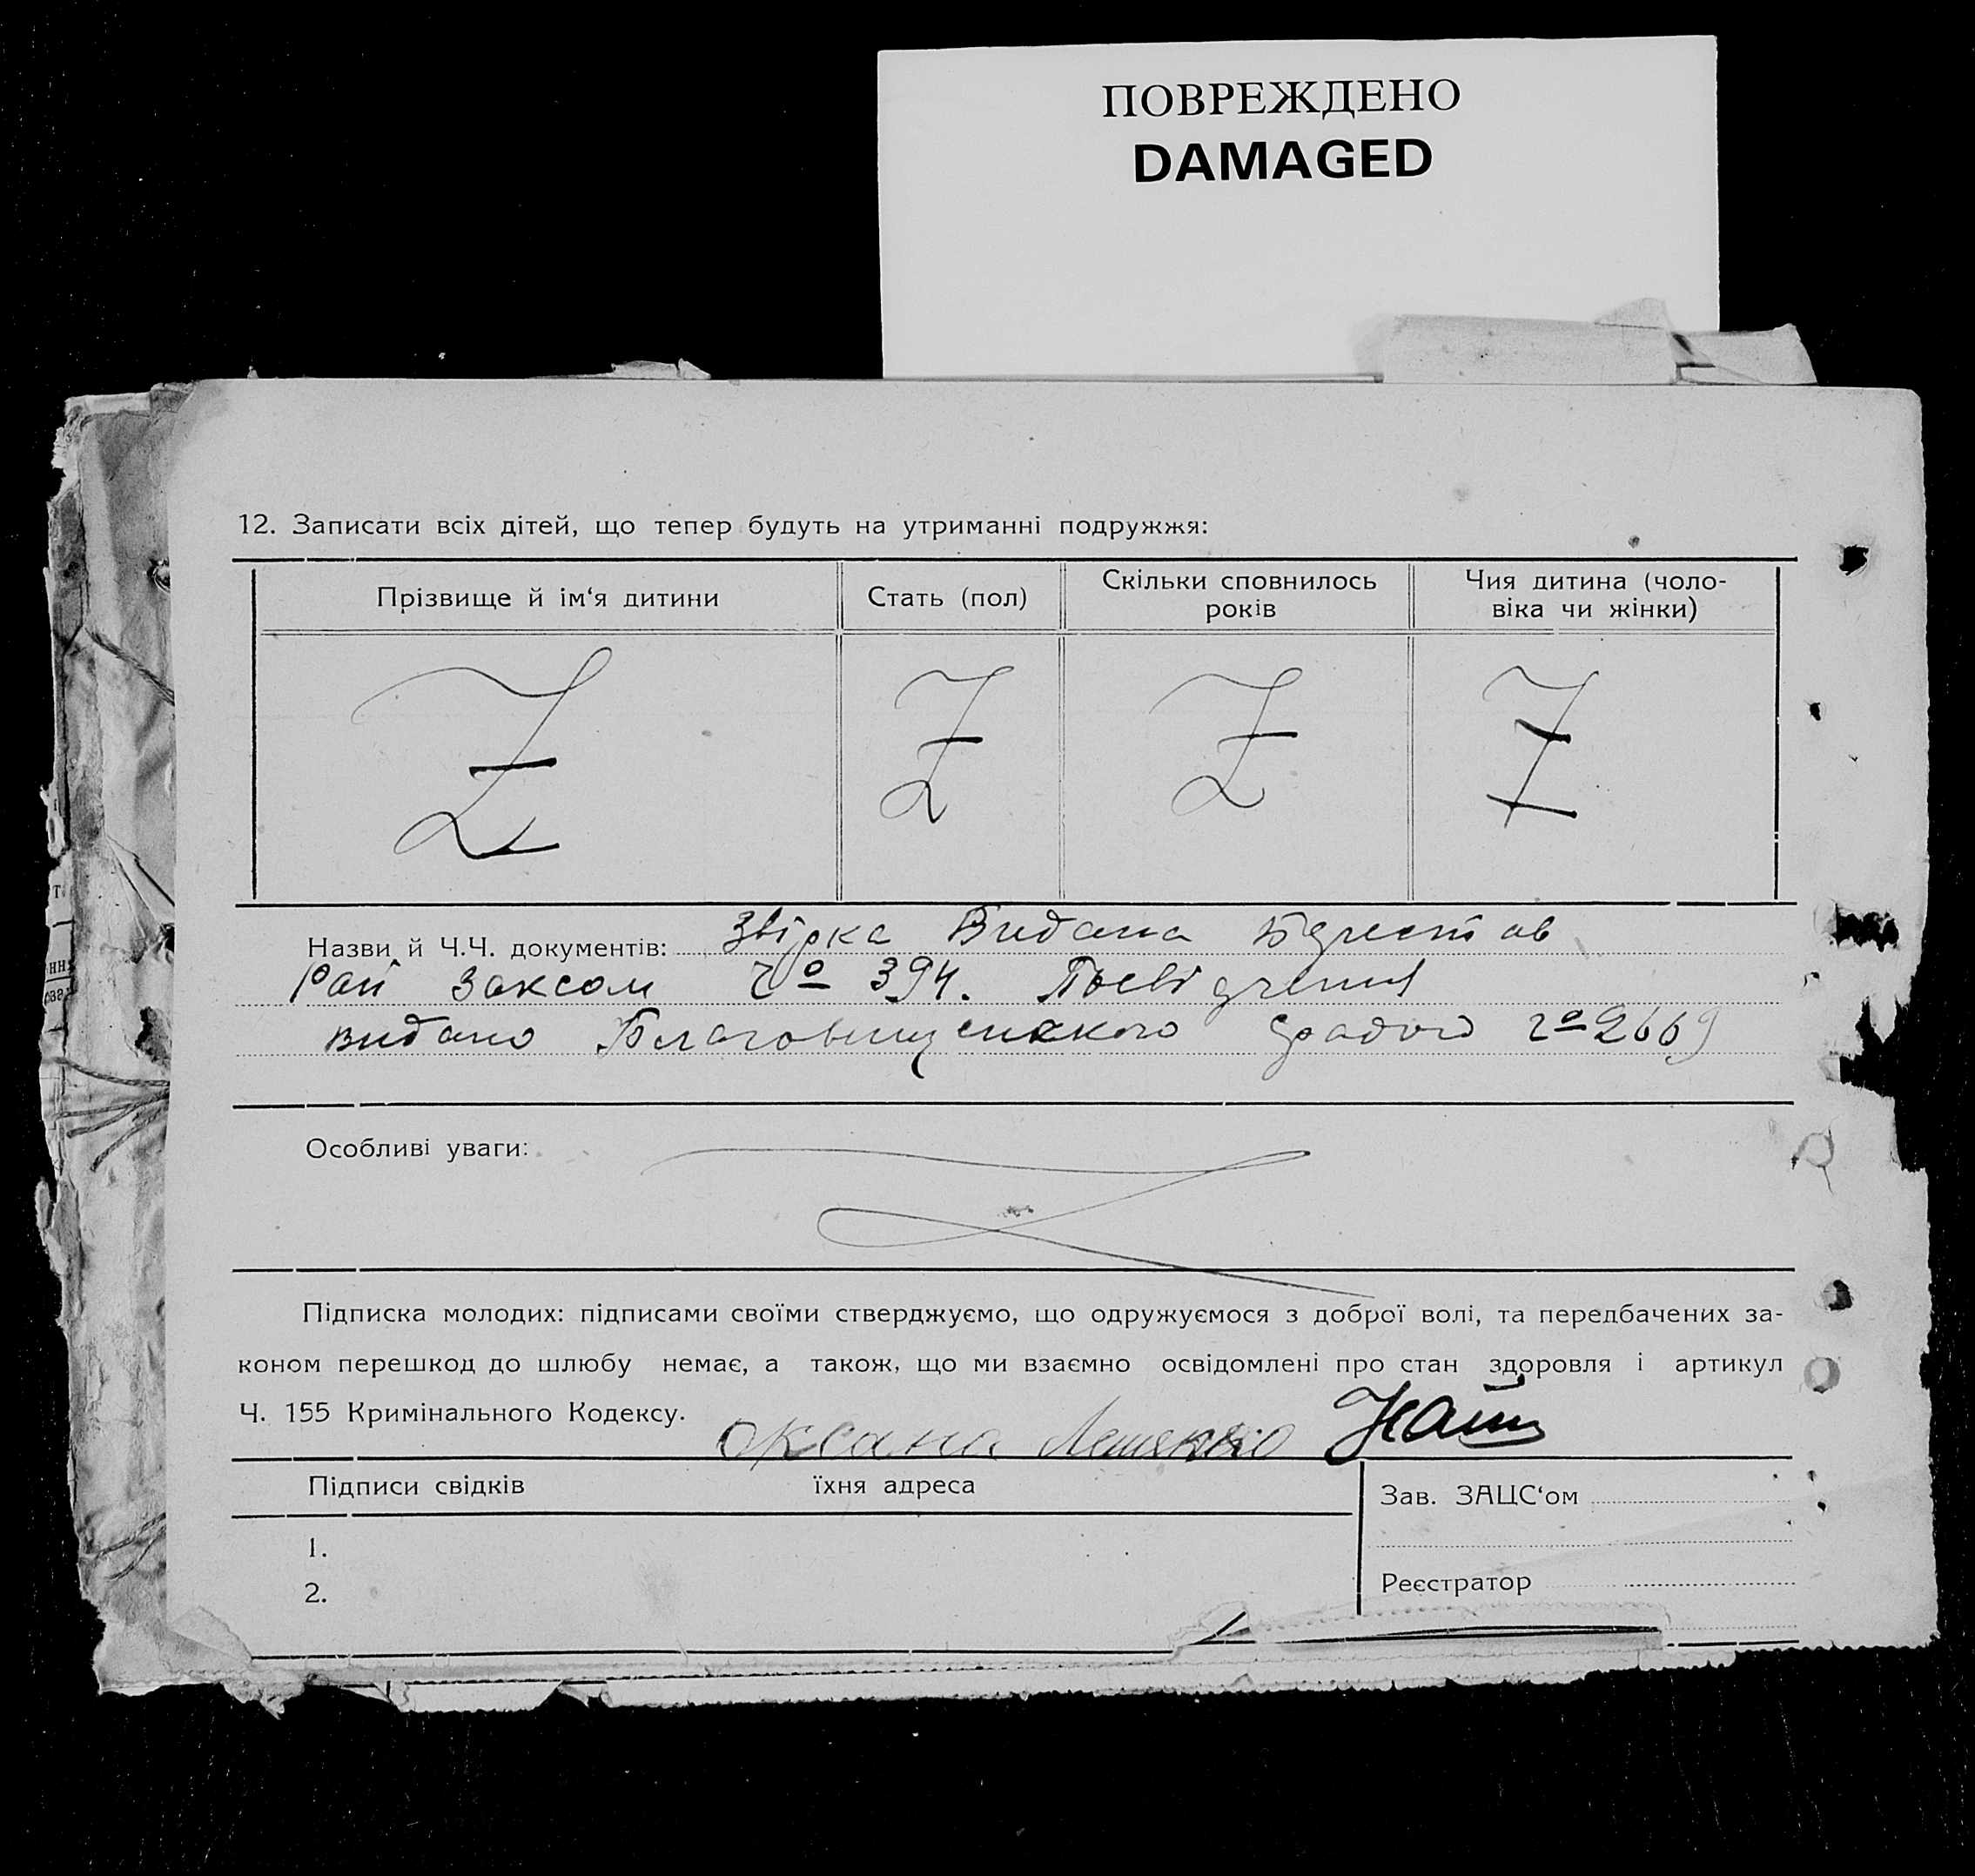 ПОВРЕЖДЕНО
DAMAGED
12. Записати всіх дітей, що тепер будуть на утриманні подружжя:
Прізвище й ім‘я дитини
Стать (пол)
Скільки сповнилось
років
Чия дитина (чоло-
віка чи жінки)
Z Z Z Z
Назви й Ч.Ч. документів: Звірка Видана
Рай Заксом ч° 394.
видано Благовищенського ч° 2669
Особливі уваги:
Підписка молодих: підписами своїми стверджуємо, що одружуємося з доброї волі, та передбачених за-
коном перешкод до шлюбу немає, а також, що ми взаємно освідомлені про стан здоровля і артикул
Ч. 155 Кримінального Кодексу. Оксана
Підписи свідків
їхня адреса
Зав. ЗАЦС‘ом
1.
Реєстратор
2.